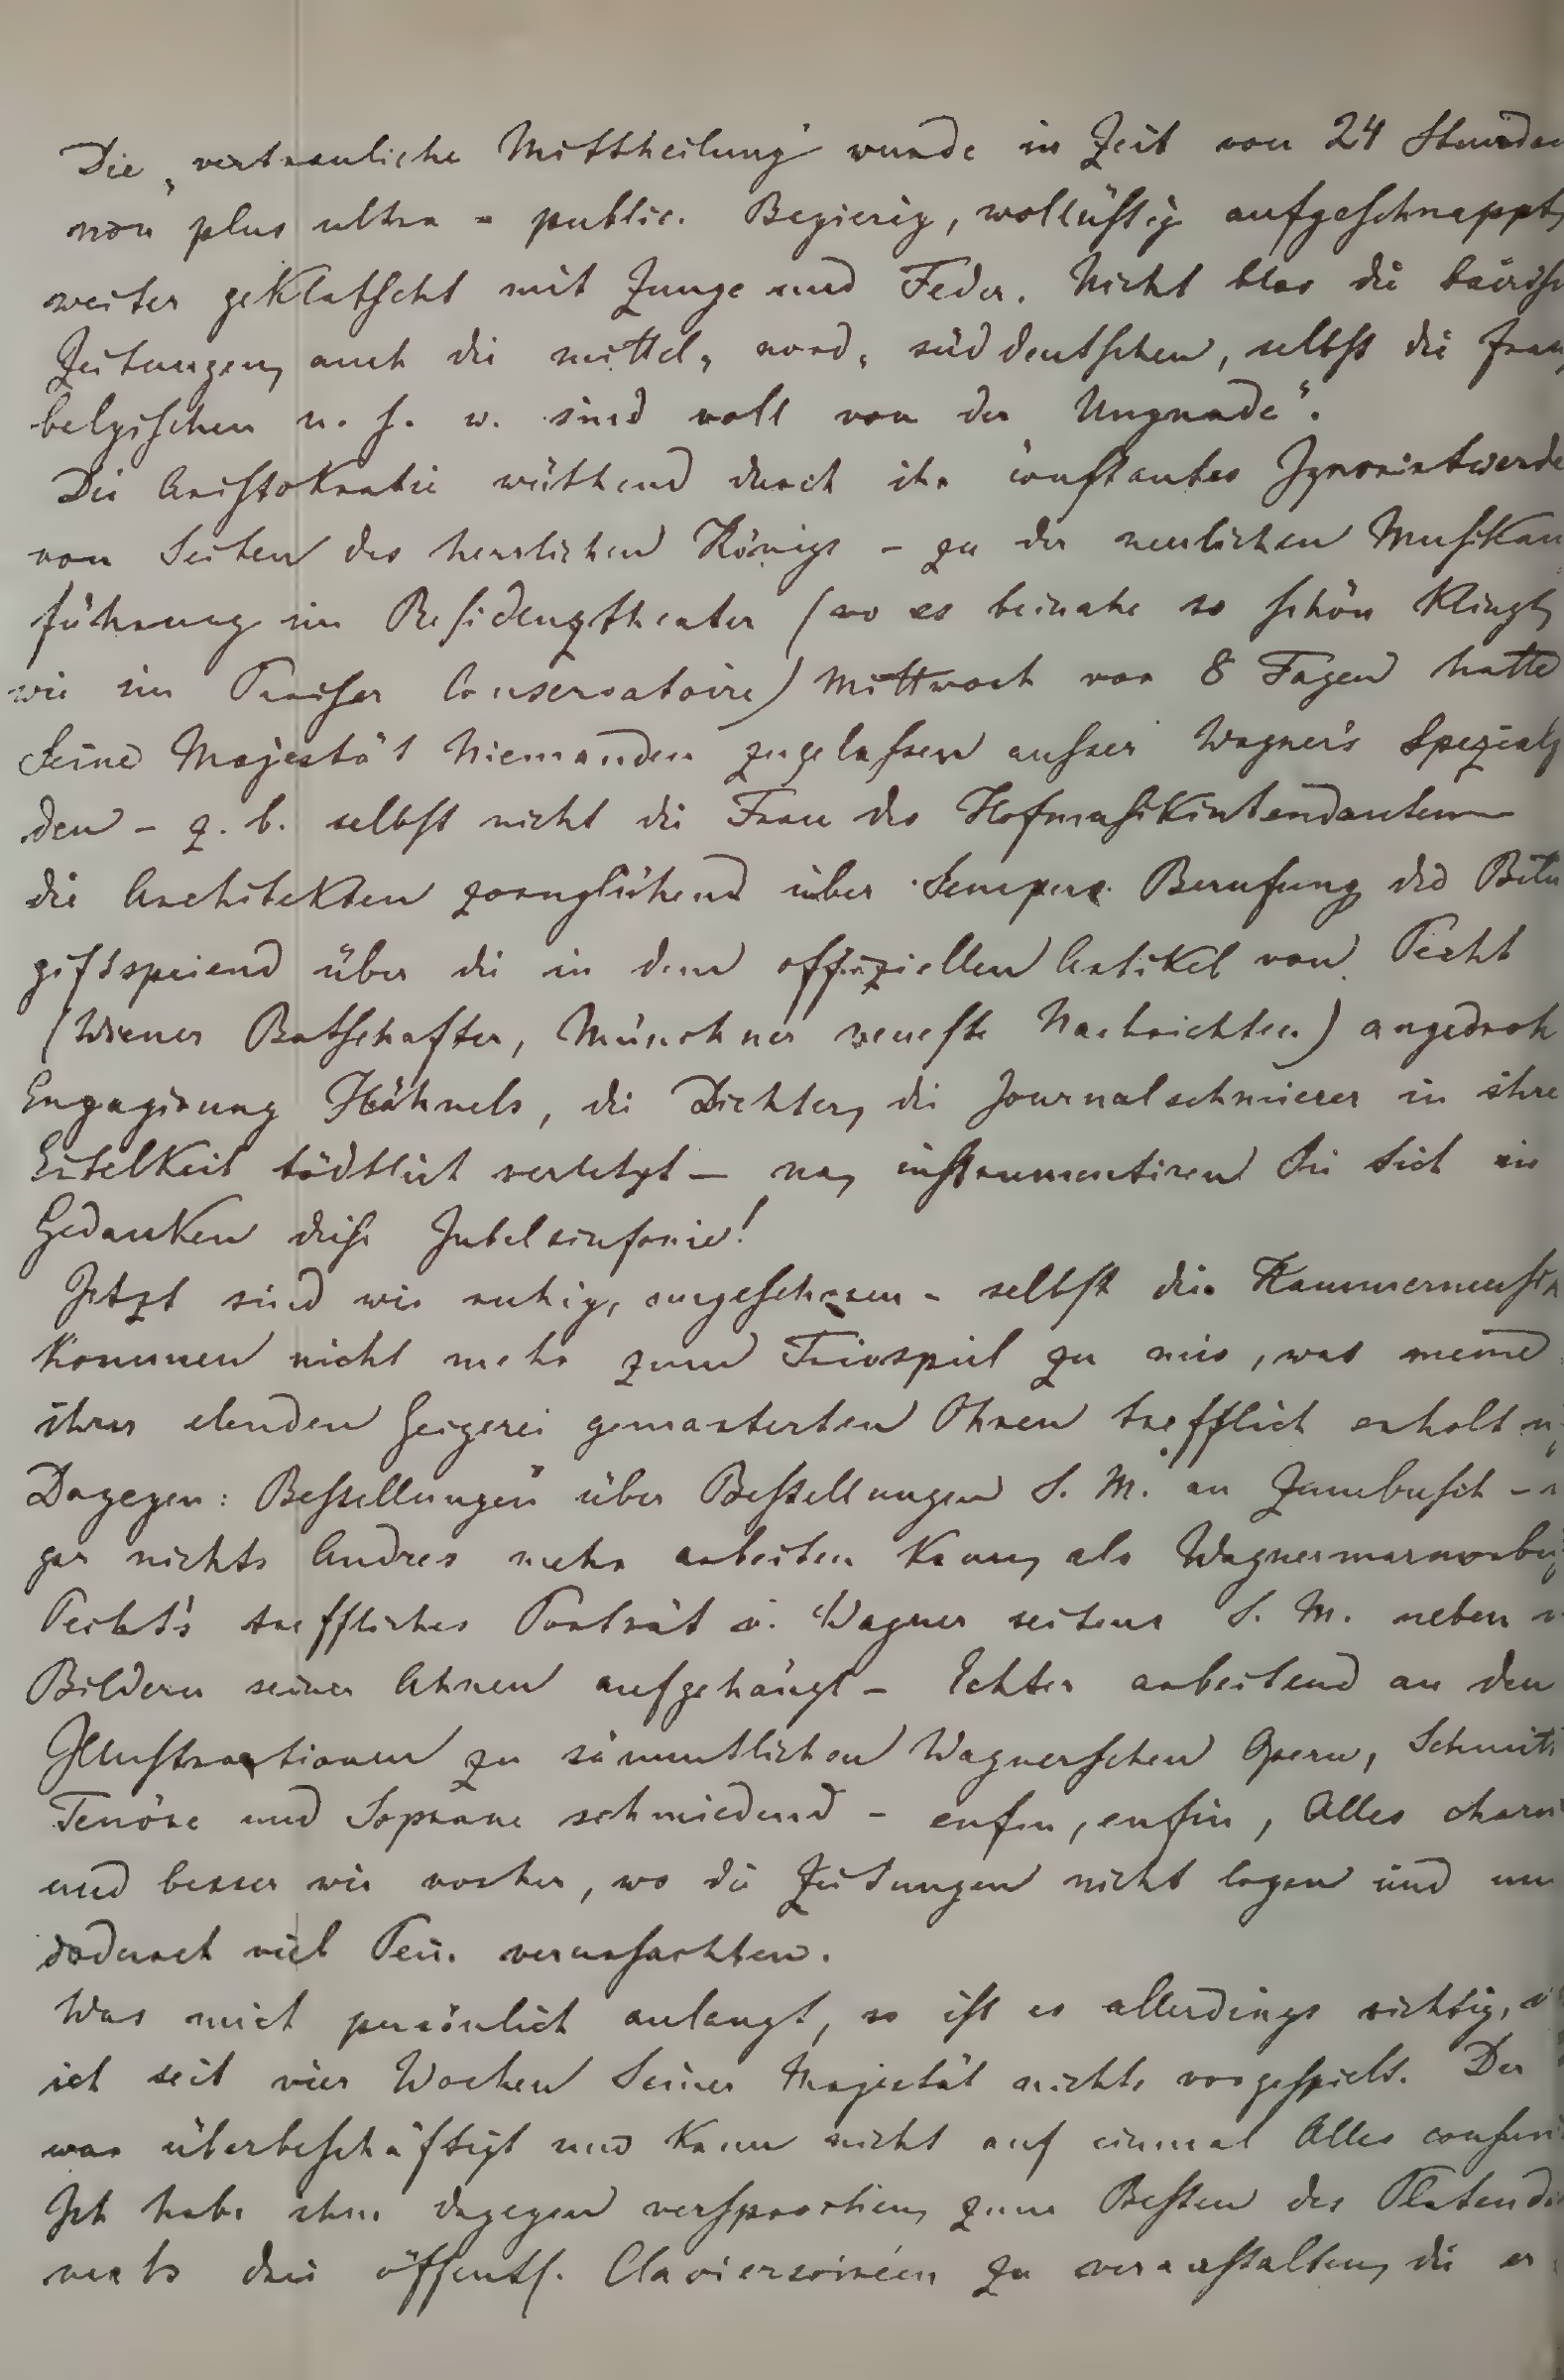 Die „vertrauliche Mittheilung“ wurde in Zeit von 24 Stunden
non plus ultra - public. Begierig, wollüstig aufgeschnappt,
weiter geklatscht mit Zunge und Feder. Nicht blos die bairisch
Zeitungen, auch die mittel, nord, süddeutschen, selbst die franz
belgischen u. s. w. sind voll von der „Ungnade“.
Die Aristokratie wüthend durch ihr constantes Ignorirtwerde
von Seiten des herrlichen Königs – zu der neulichen Musikau
führung im Residenztheater (wo es beinahe so schön klingt,
wie im Pariser Conservatoire) Mittwoch vor 8 Tagen hatte
Seine Majestät Niemanden zugelassen ausser Wagner's Spezial
den – z. b. selbst nicht die Frau des Hofmusikintendanten
die Architekten zornglühend über Sempers Berufung die Bild
giftspeiend über die in dem offiziellen Artikel von Pecht
(Wiener Botschafter, Münchner neueste Nachrichten) angedroh
Engagirung Hähnels, die Dichter, die Journalschmierer in ihre
Eitelkeit tödtlich verletzt – na, instrumentiren Sie sich in
Gedanken diese Jubelsinfonie!
Jetzt sind wir ruhig, ungeschoren – selbst die Kammermusik
kommen nicht mehr zum Triospiel zu mir, was meine
ihrer elenden Geigerei gemarterten Ohren trefflich erholt
Dagegen: Bestellungen über Bestellungen S. M. an Zumbusch –
gar nichts Andres mehr arbeiten kann, als Wagnermarmorbü
Pecht's treffliches Porträt v. Wagner seitens S. M. neben
Bildern seiner Ahnen aufgehängt – Echter arbeitend an den
Illustrationen zu sämmtlichen Wagnerschen Opern, Schmitt
Tenöre und Soprane schmiedend – enfin, enfin, Alles charm
und besser wie vorher, wo die Zeitungen nicht logen und un
dadurch viel Pein verursachten.
Was mich persönlich anlangt, so ist es allerdings richtig,
ich seit vier Wochen Seiner Majestät nichts vorgespielt. Der
war überbeschäftigt und kann nicht auf einmal Alles consumi
Ich habe ihm dagegen versprochen, zum Besten des Platend
ments drei öffentl. Claviersoiréen zu veranstalten, die er